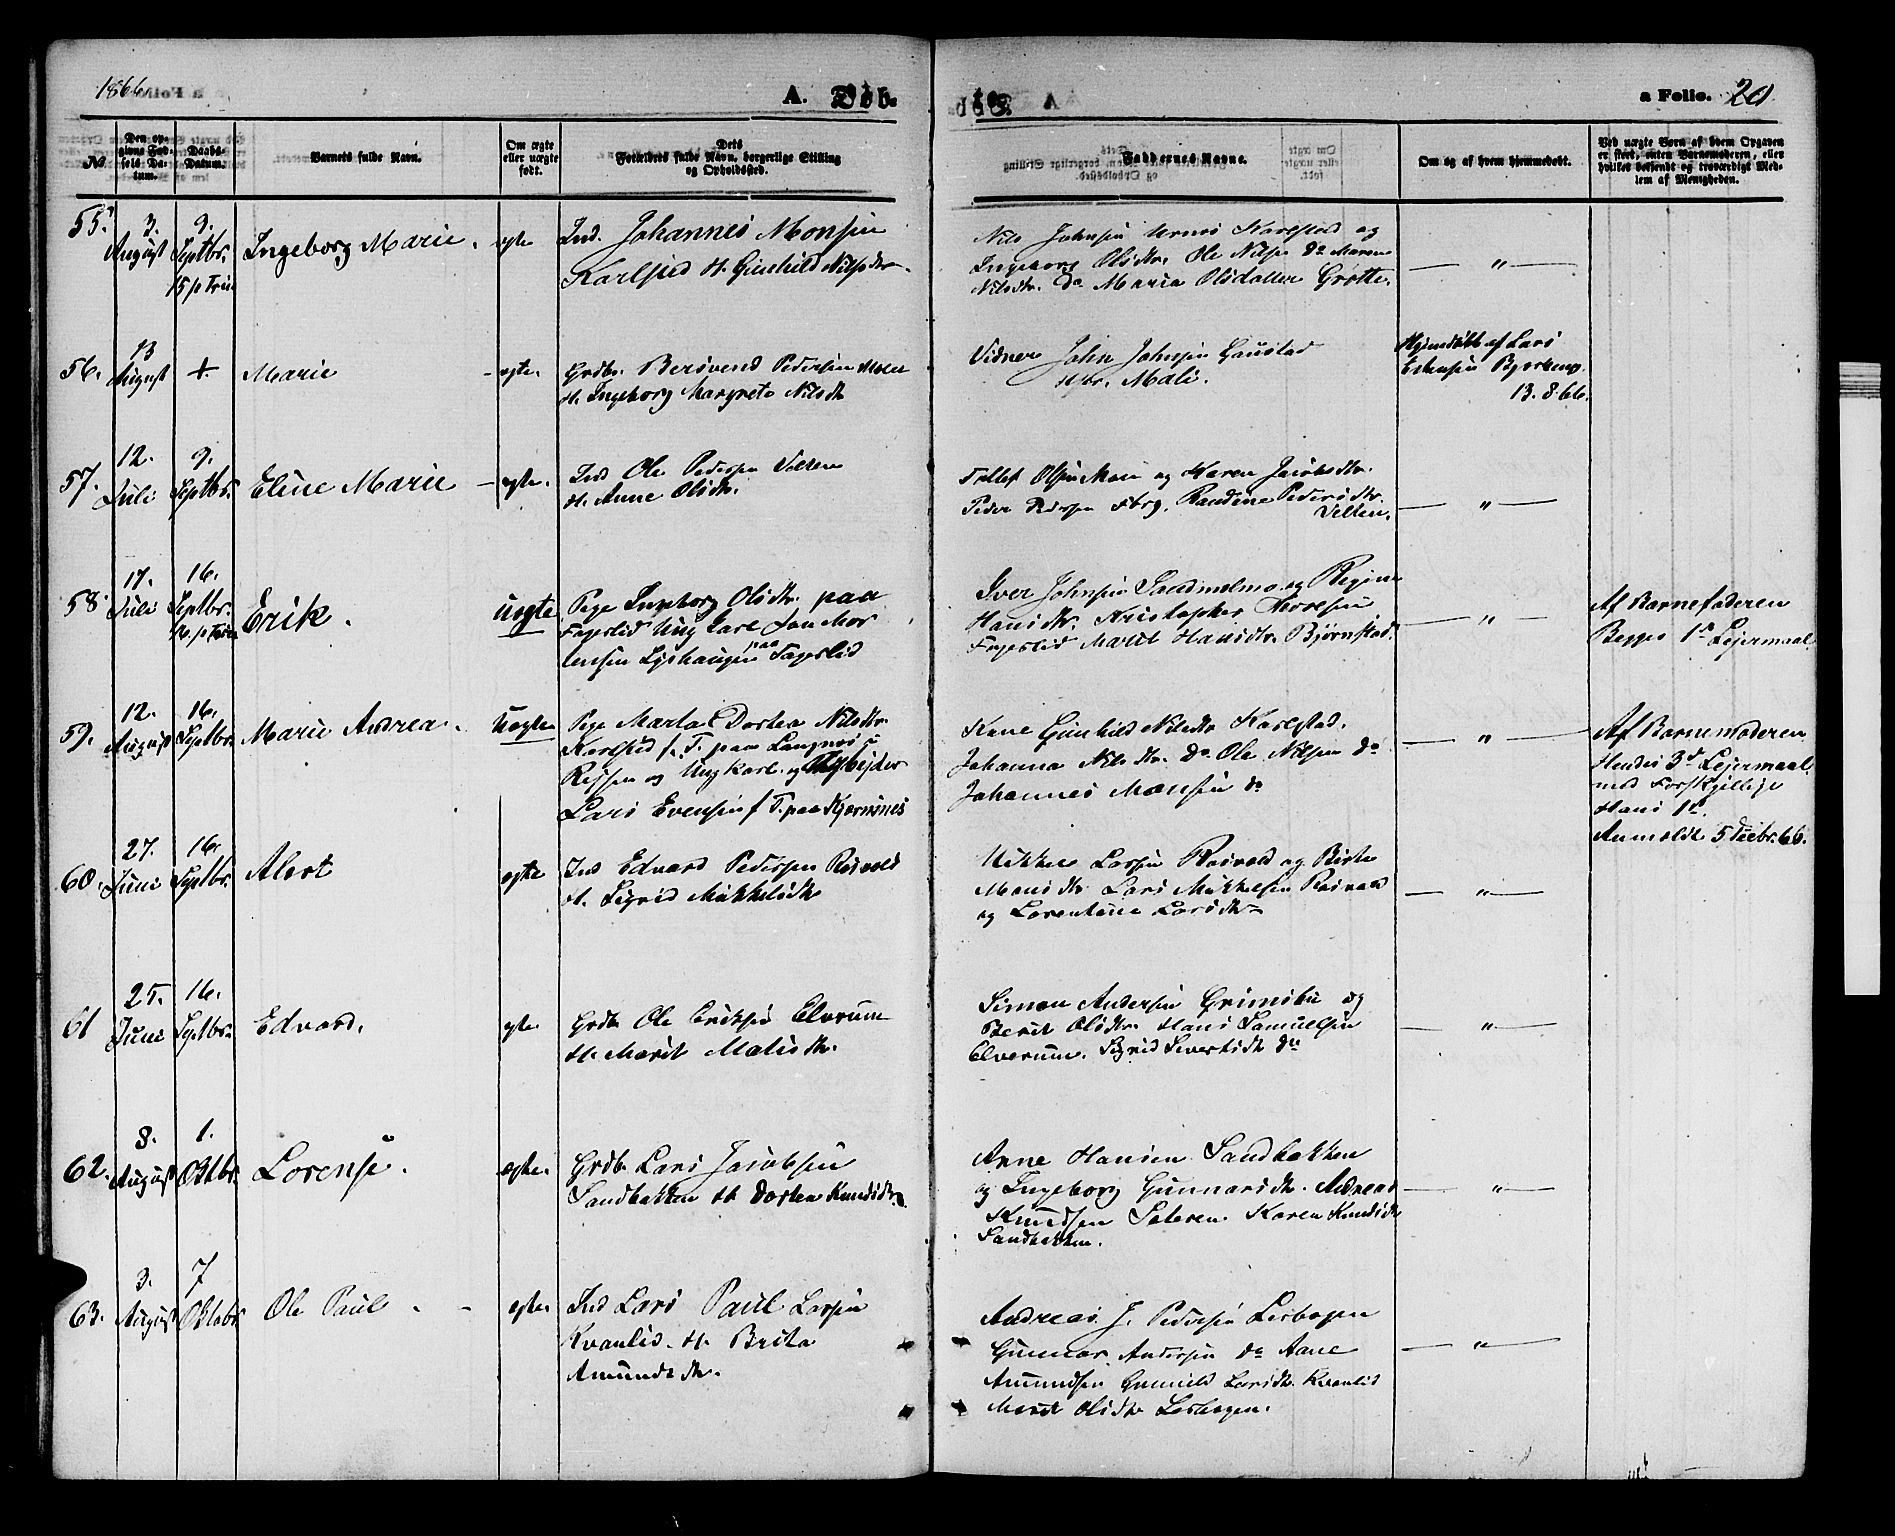 1866.
A. Døb-
te.
a Folio. 20.
No
Den op-
givne Fød-
sels Da-
tum.
Daabs-
Datum.
Barnets fulde Navn.
Om ægte
eller uægte
født.
Dets
Forældres fulde Navn, borgerlige Stilling
og Opholdssted.
Faddernes Navne.
Om og af hvem hjemmedøbt.
Ved uægte Børn af hvem Opgaven
er skeet, enten Barnemoderen, eller
hvilket bekjendt og troværdigt Med-
lem af Menigheden.
55. 3. August 9. Septbr. 15 p Trin Ingeborg Marie. egte Ind. Johannes Monsen
Karlsted H. Gunhild Nilsdtr.
Nils Johnsen Karlstad og
Ingeborg Olsdtr. Ole Nilsen Do Maren
Nilsdtr. Do Maria Olsdatter Grøtte.
— " —
56. 13 August +. Marie - egte. Grdbr. Berdvend Pedersen Moen
H. Ingeborg Margrete Nilsdtr
Vidner John Johnsen Gaustad
Mali.
Hjemdøbt af Lars
Estensen Bjerkeng.
13.8.66.
57. 12. Juli 9. Septbr. Eline Marie - egte. Ind Ole Pedersen Velten
H. Anne Olsdtr.
Tollef Olsen Moen og Karen Jacobsdtr.
Peder Pedersen Fbrg. Randine Pedersdtr.
Velten.
— " —
58. 17. Juli 16. Septbr. 16. p Trin Erik. Uegte Pige Ingeborg Olsdtr. paa
Fageslid Ung Karl Jon Mor
tensen Lishaugen paa Fageslid
Iver Johnsen Sandmelmo og Regine
Hansdtr. Kristopher Thoresen
Fageslid Marit Hansdtr. Bjørnstad.
— " —
Af Barnefaderen
Begges 1ste Lejermaal.
59. 12. August 16. Septbr. Marie Andrea. Uegte Pige Marta Dortea Nilsdtr.
Karlsted f. T. paa Langnes i
Rejsen og Ung Karl og Arbejder
Lars Evensen f T. paa Kjærnsnes
Kone Gunhild Nilsdtr Karlstad.
Johanna Nilsdtr. Do Ole Nilsen Do
Johannes Monsen Do
— " —
Af Barnemoderen
Hendes 3die Lejermaal
med Forskjellige
Hans 1ste
Anmeldt 5 Decbr. 66.
60. 27. Juni 16. Septbr. Albert egte Ind Edvard Pedersen Rosvold
H. Sigrid Mikkelsdtr
Mikkel Larsen Rosvold og Birte
Monsdtr. Lars Mikkelsen Rosvold
og Lorentine Larsdtr
— " —
61 25. Juni 16. Septbr. Edvard. egte. Grdbr Ole Eriksen Elverum
H. Marit Matisdtr.
Simon Andersen Grimsbu og
Berit Olsdtr. Hans Samuelsen
Elverum. Sigrid Sivertsdtr do
— " —
62. 8. August 1. Oktbr. Lorense. egte. Grdbr Lars Jacobsen
Sandbakken H. Dortea Knudsdtr.
Arne Hansen Sandbakken
og Ingeborg Gunnarsdtr. Andreas
Knudsen Sateren. Karen Knudsdtr
Sandbakken.
— " —
63. 3. August 7 Oktobr Ole Paul . - egte. Ind Lars Paul Larsen
Kvanlid. H. Brita
Amundsdtr.
Andreas J. Pedersen Lisbogen
Gunnar Andersen do Aane
Amundsen Gunnild Larsdtr. Kvanlid
Marit Olsdtr Lisbogen.
— " —